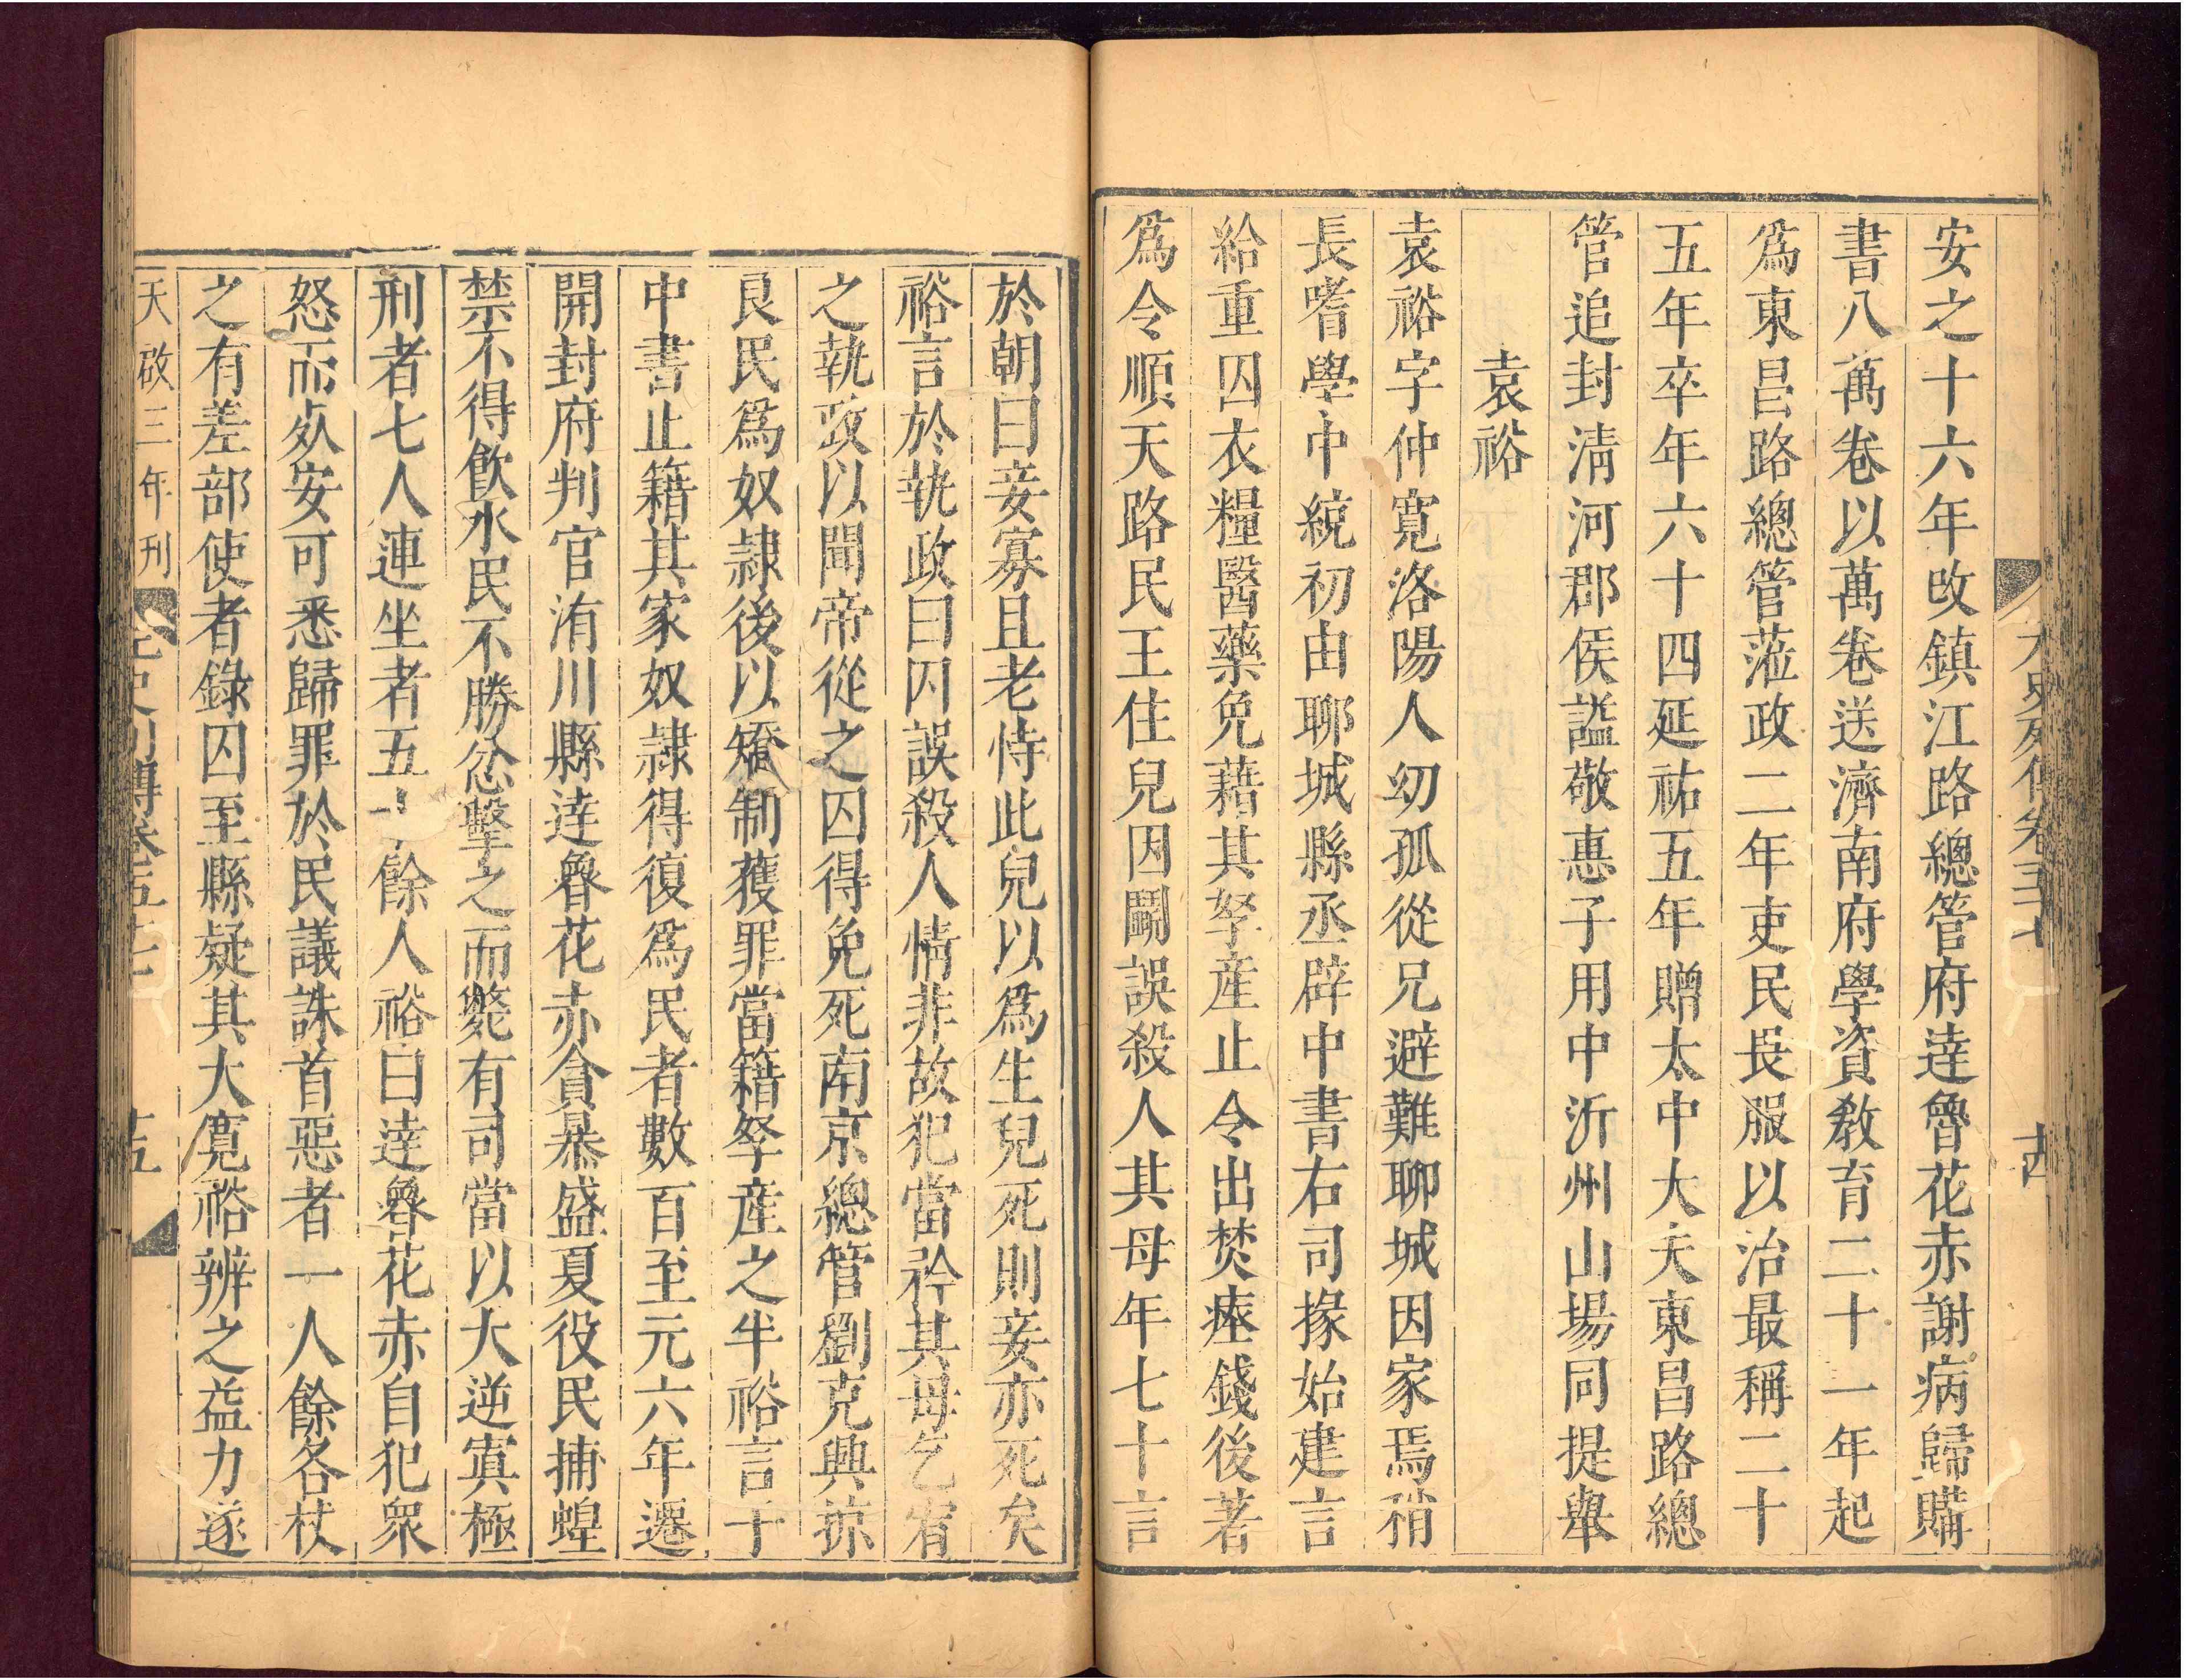 安之十六年改鎮江路總管府達魯花赤謝病歸購
書八萬卷以萬卷送濟南府學資教育二十一年起
爲東昌路總管蒞政二年吏民長服以治最稱二十
五年卒年六十四延祐五年贈太中大夫東昌路總
管追封清河郡侯謚敬惠子用中沂州山場同提舉
袁裕
袁裕字仲寬洛陽人幼孤從兄避難聊城因家焉稍
長嗜學中統初由聊城縣丞辟中書右司掾始建言
給重囚衣糧醫藥免藉其孥産止令出焚瘞錢後著
爲令順天路民王住兒因鬭誤殺人其母年七十言
於朝曰妾寡且老恃此兒以爲生兒死則妾亦死矣
裕言於執政曰囚誤殺人情非故犯當矜其母乞宥
之執政以聞帝從之囚得免死南京總管劉克興掠
良民爲奴隷後以矯制獲罪當籍孥産之半裕言于
中書止籍其家奴隷得復爲民者數百至元六年遷
開封府判官洧川縣達魯花赤貪暴盛夏役民捕蝗
禁不得飲水民不勝忿擊之而斃有司當以大逆寘極
刑者七人連坐者五十餘人裕曰達魯花赤自犯衆
怒而死安可悉歸罪於民議誅首惡者一人餘各杖
之有差部使者錄囚至縣疑其大寬裕辨之益力遂
天啟三年刊